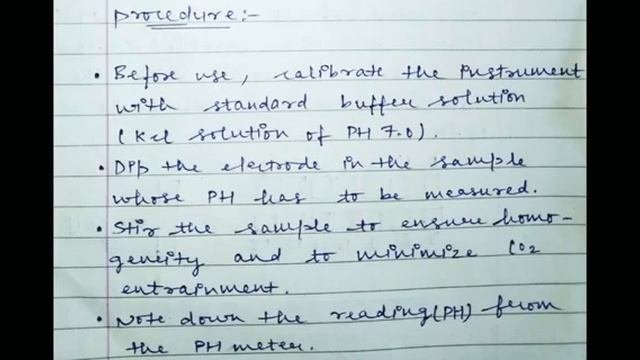 Procedure:-
• Before use, calibrate the instrument
with standard buffer solution
(Kcl solution of PH 7.0).
• Dip the electrode in the sample
whose PH has to be measured.
• Stir the sample to ensure homo-
geneity and to minimize CO2
entrainment.
• Note down the reading(PH) from
the PH meter.